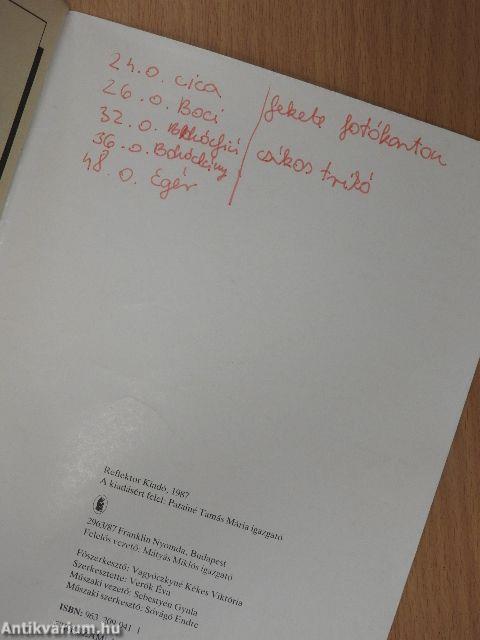 24.o. cica
26.o. Boci
32.o. Bohócfiú
36.o. Bohóclány
48.o. Egér
fekete fotókarton
csíkos trikó
Reflektor Kiadó, 1987
A kiadásért felel: Pataine Tamás Mária igazgató
2963/87 Franklin Nyomda, Budapest
Felelős vezető: Mátyás Miklós igazgató
Főszerkesztő: Vagyóczkyné Kékes Viktória
Szerkesztette: Verők Éva
Műszaki vezető: Sebestyén Gyula
Műszaki szerkesztő: Sóvágó Endre
ISBN: 963 209 041 1
Antikvarium.hu